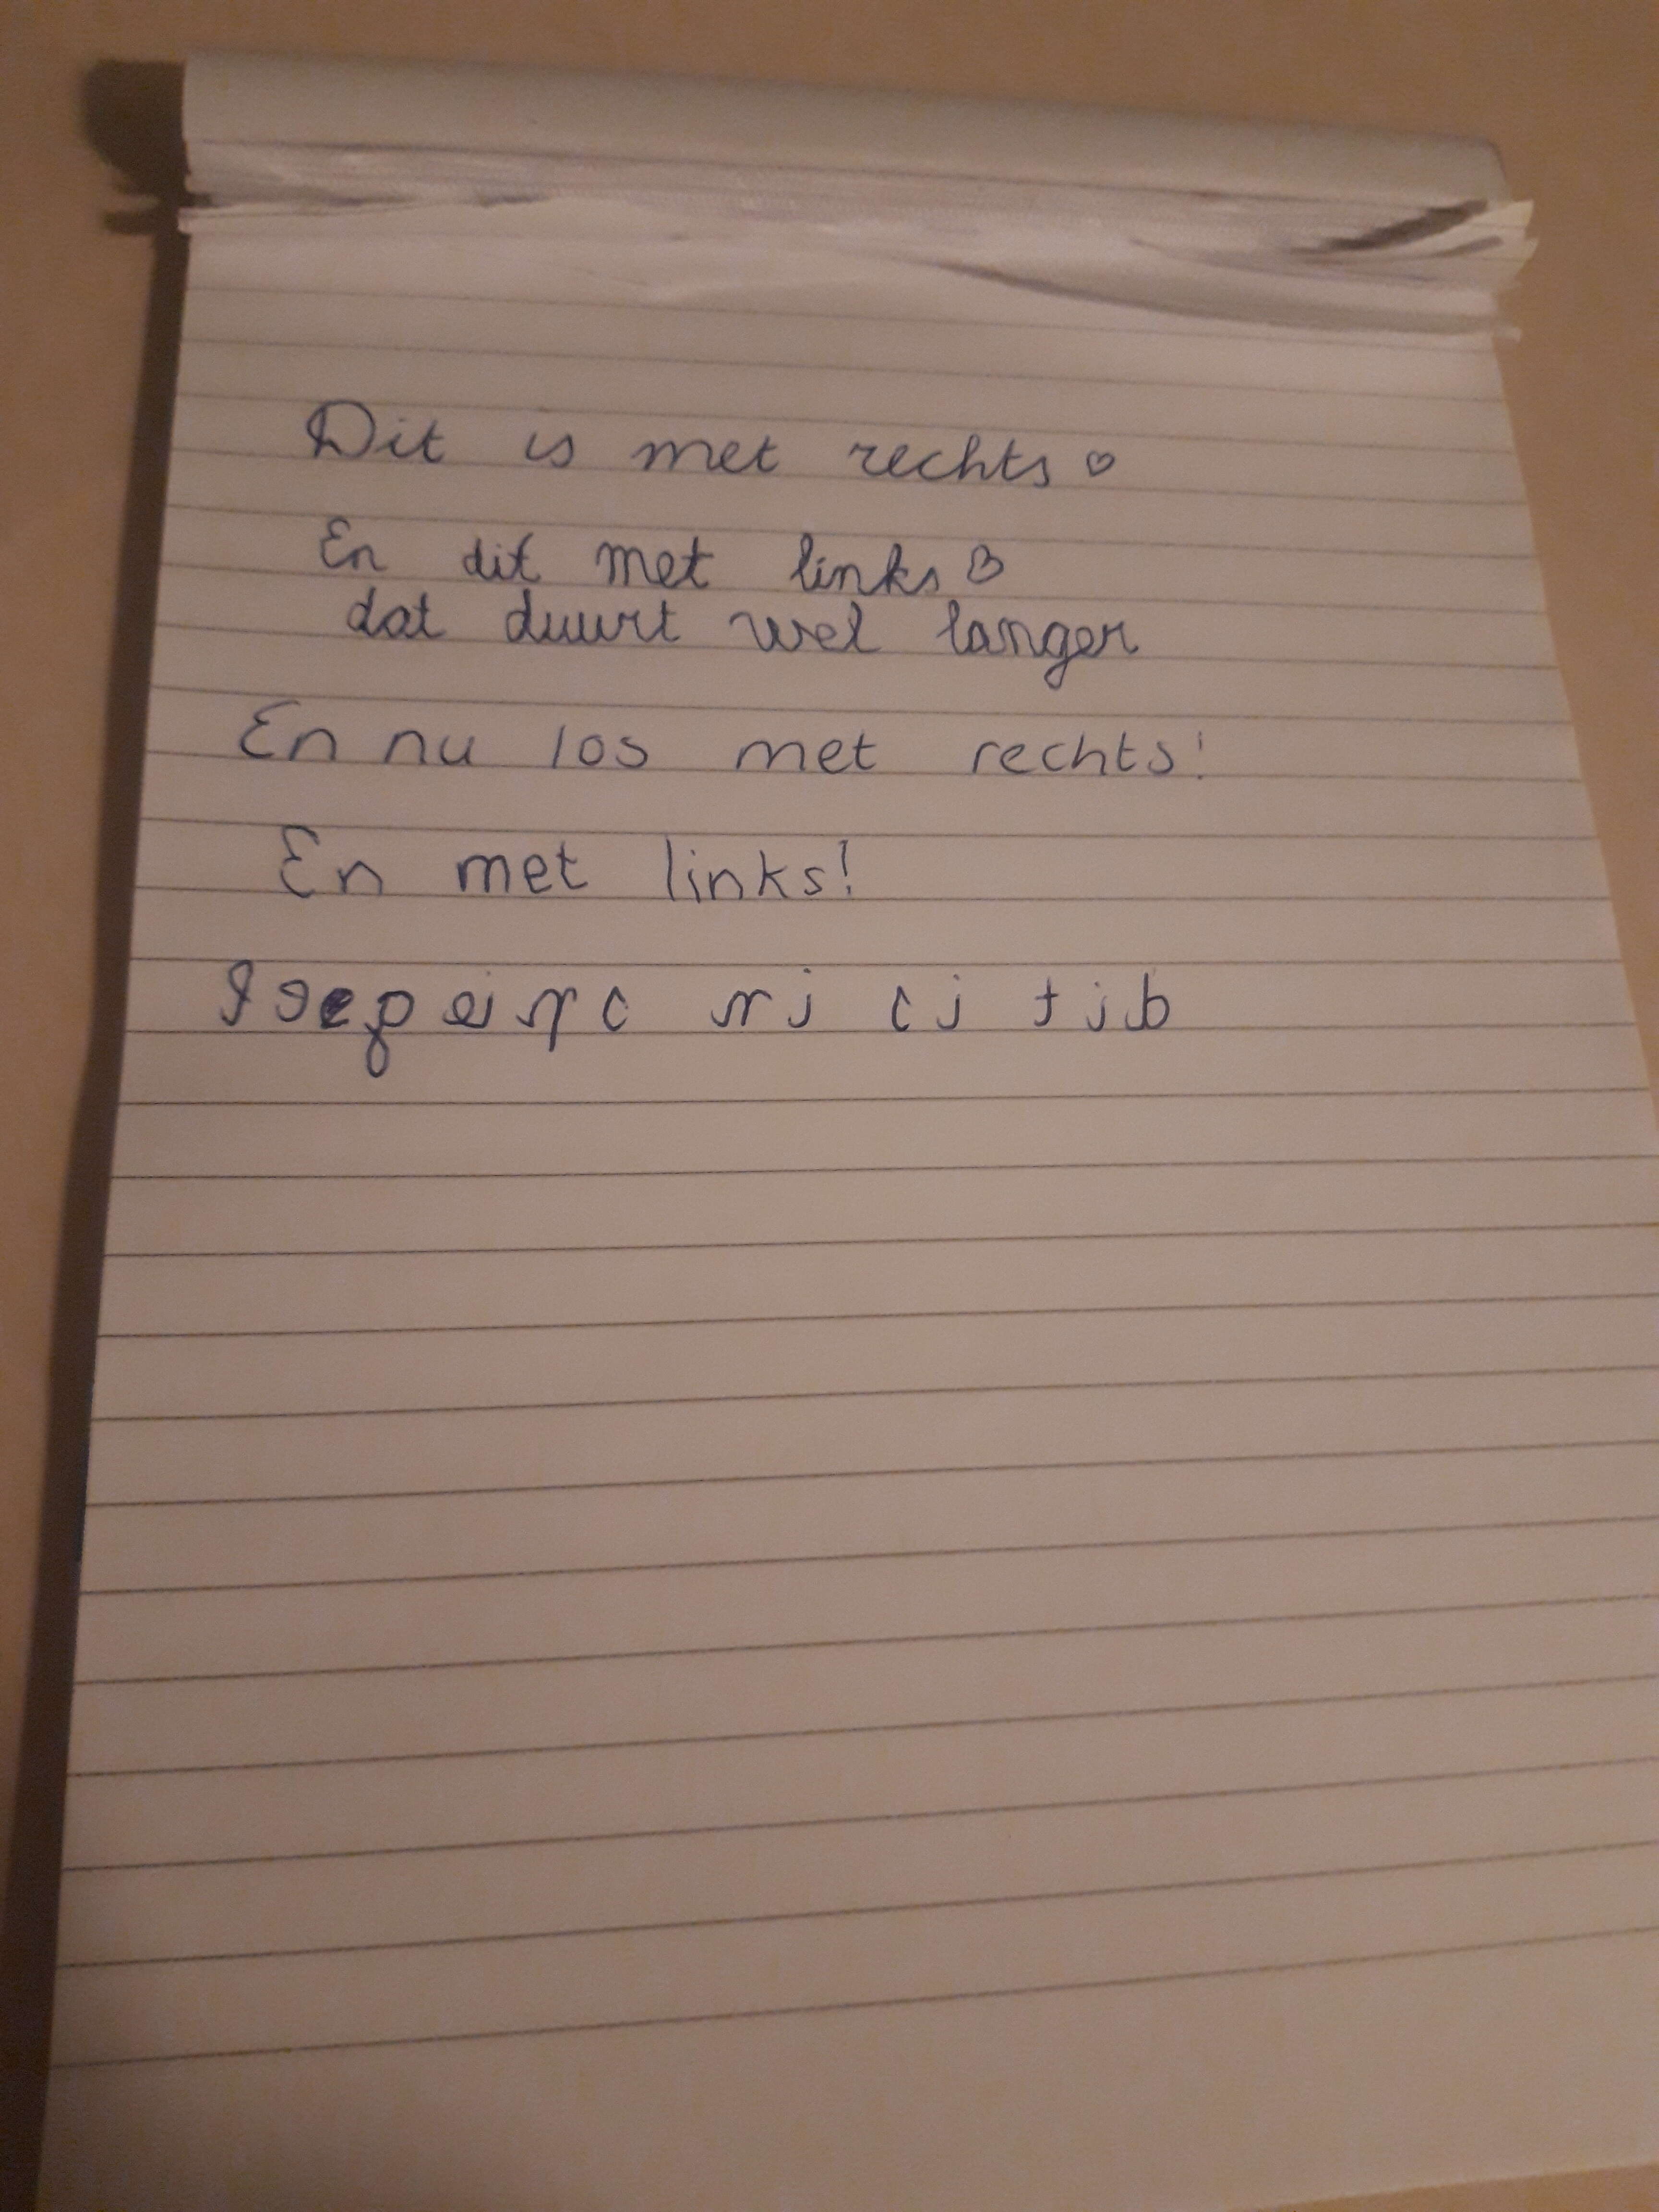 Dit is met rechts ♡
En dit met links ♡
dat duurt wel langer
En nu los met rechts!
En met links!
dit is in